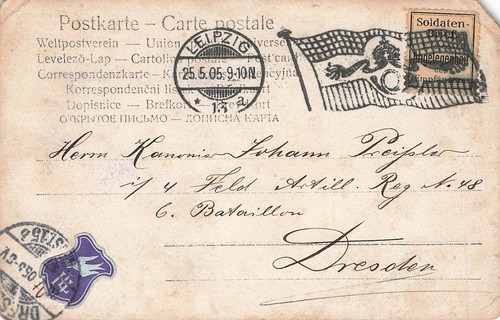 Postkarte – Carte postale
Weltpostverein – Union
Levelező-Lap – Cartolina postale – Post card
Correspondenzkarte –
Korrespondenční lístek
Dopisnice – Brefkort
ОТКРЫТОЕ ПИСЬМО – ДОПИСНА КАРТА
LEIPZIG
25.5.05. 9-10N
* 13 a
Soldaten-
Herrn Kanonier Johann Preißler
i/ 4 Feld Artill. Reg No 48
6. Bataillon
Dresden